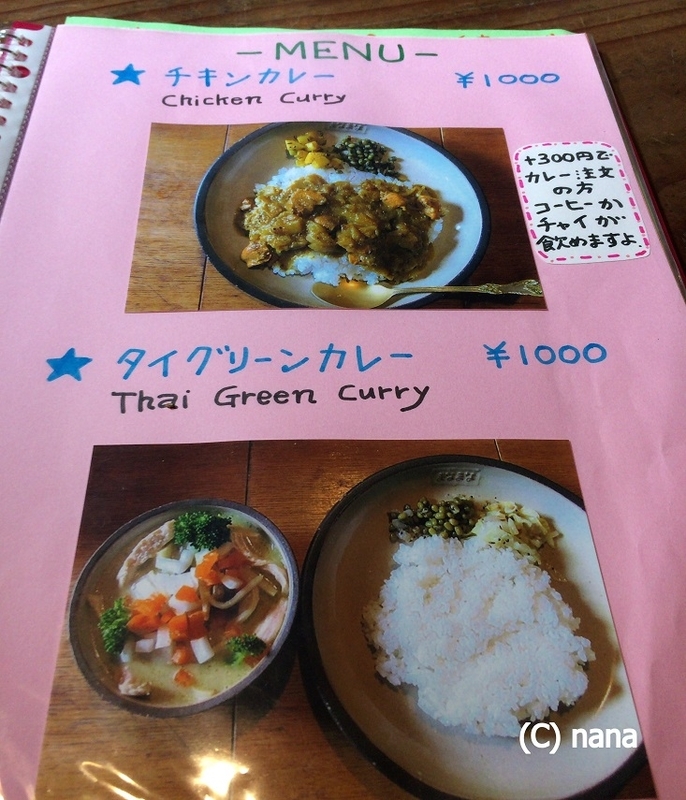 -MENU-
★ チキンカレー ¥1000
Chicken Curry
+300円で
カレー注文
の方
コーヒーか
チャイが
飲めますよ.
★ タイグリーンカレー ¥1000
Thai Green Curry
(C) nana